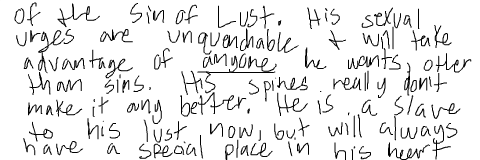 of the Sin of Lust. His sexual
urges are unquenchable & will take
advantage of anyone he wants, other
than sins. His spines really don't
make it any better. He is a slave
to his lust now, but will always
have a special place in his heart